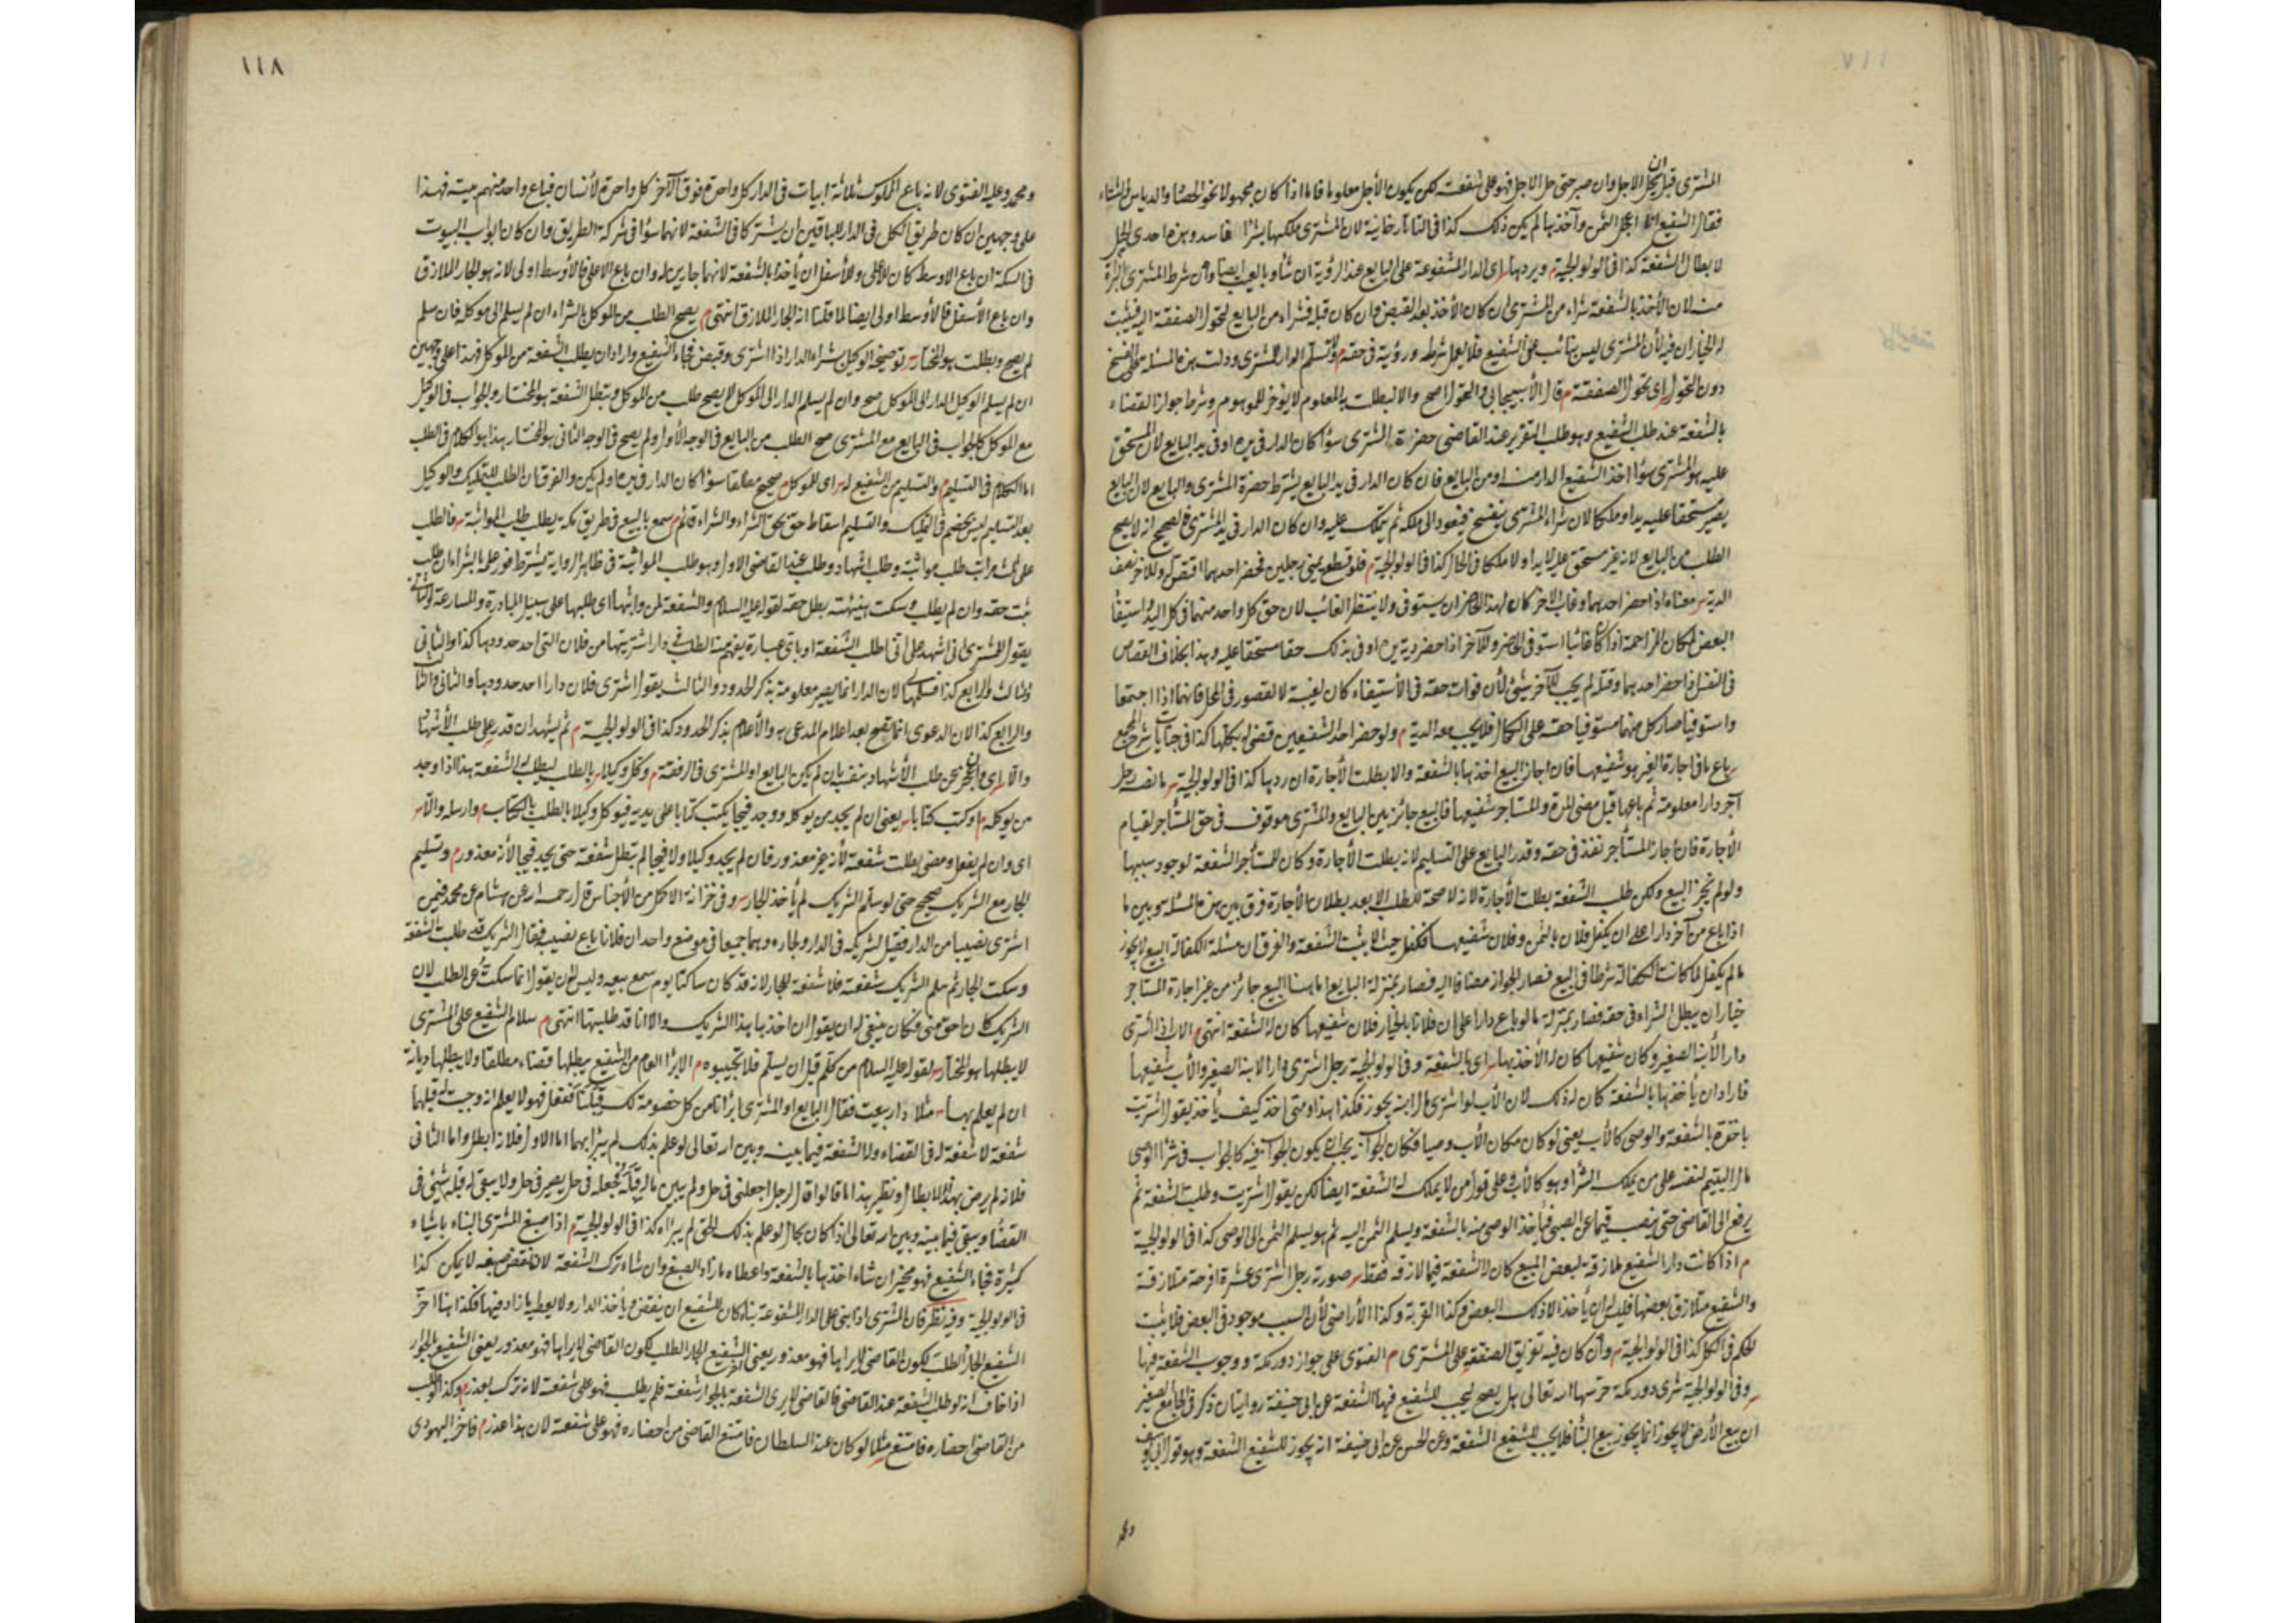 المشترى قبل ان يحل الاجل وان صبر حتى حل الاجل فهو على شفعته لكن يكون الأجل معلوما فاما اذا كان مجهولا نحو الحصاد والدياس
فقال الشفيع انا اعجل الثمن وآخذ بها لم يكن ذلك كذا فى التاتارخانية لان المشترى ملكها بشراء فاسد وهذه احدى الحيل
لابطال الشفعة كذا فى الولوالجية ويردها اى الدار المشفوعة على البايع عند الرؤية ان شاء وبالعيب ايضا وان شرط المشترى البراءة
منه لان الأخذ بالشفعة شراء من المشترى ان كان الأخذ بعد القبض فان كان قبله فشراء من البايع لتحول الصفقة اليه فيثبت
له الخياران فيه لأن المشترى ليس بنائب عن الشفيع فلا يعمل شرطه ورؤيته فى حقه م
دون التحول اى تحول الصفقة م قال الأسبيجابى والتحول اصح والا لبطلت به المعلوم لا يؤخر للموهوم وشرط جواز القضاء
بالشفعة عند طلب الشفيع وهو طلب التقرير عند القاضى حضرة المشترى سواء كان الدار فى يده او فى يد البايع لان المستحق
عليه هو المشترى سواء اخذ الشفيع الدار منه او من البايع فان كان الدار فى يد البايع يشترط حضرة المشترى والبايع لان البايع
يصير مستحقا عليه يدا وملكا لان شراء المشترى ينفسخ فيعود الى ملكه ثم يتملك عليه وان كان الدار فى يد المشترى فالصحيح انه لا يصح
الطلب من البايع لانه غير مستحق عليه لا يدا ولا ملكا فى الحال كذا فى الولوالجية م فلو قطع يمنى رجلين فحضر احدهما اقتص له وللآخر نصف
الدية معناه اذا حضر احدهما وغاب الآخر كان لهذا الحاضر ان يستوفى ولا ينتظر الغائب لان حق كل واحد منهما فى كل اليد واستيفاء
البعض لمكان المزاحمة اذا كان غائبا استوفى الحاضر وللآخر اذا حضر دية يده اوفى بذلك حقا مستحقا عليه وهذا بخلاف القصاص
فى النفس اذا حضر احدهما وقتل لم يجب للآخر شىء لأن فوات حقه فى الأستيفاء كان لغيبته لا لقصور فى المحل فانهما اذا اجتمعا
واستوفيا صار كل منهما مستوفيا حقه على الكمال فلا يجب معه الدية م ولو حضر احد الشفيعين قضى له بكلها كذا فى جنايات شرح المجمع
باع ما فى اجارة الغير هو شفيعها فان اجاز البيع اخذها بالشفعة والا بطلت الأجارة ان ردها كذا فى الولوالجية ما نصه رجل
آجر دارا معلومة ثم باعها قبل مضى المدة والمستأجر شفيعها فالبيع جائز بين البايع والمشترى موقوف فى حق المستأجر لقيام
الأجارة فان اجاز المستأجر نفذ فى حقه وقدر البايع على التسليم لانه بطلت الأجارة وكان للمستأجر الشفعة لوجود سببها
ولو لم يجز البيع ولكن طلب الشفعة بطلت الأجارة لانه لا صحة للطلب الا بعد بطلان الأجارة فرق بين هذه المسئلة وبين ما
اذا باع من آخر دارا على ان يكفل فلان بالثمن وفلان شفيعها فكفل حيث لا يثبت الشفعة والفرق ان مسئلة الكفالة البيع لا يجوز
ما لم يكفل لما كانت الكفالة شرطا فى البيع فصار الجواز مضافا اليه فصار بمنزلة البايع اما هنا البيع جائز من غير اجازة المستأجر
خيار ان يبطل الشراء فى حقه فصار بمنزلة ما لو باع دارا على ان فلانا بالخيار فلان شفيعها كان له الشفعة انتهى م الاب اذا اشترى
دار الأبنه الصغير وكان شفيعها كان له الأخذ بها اى بالشفعة وفى الولوالجية رجل اشترى دارا لابنه الصغير والأب شفيعها
فاراد ان يأخذها بالشفعة كان له ذلك لان الأب لو اشترى مال ابنه يجوز فكذا هذا ومتى اخذ كيف يأخذ يقول اشتريت
باخذه بالشفعة والوصى كالأب يعنى لو كان مكان الأب وصيا فكان الجواب يجب ان يكون الجواب فيه كالجواب فى شراء الوصى
مال اليتيم لنفسه على من يملك الشراء وهو كالأب وعلى قول من لا يملك له الشفعة ايضا لكن يقول اشتريت وطلبت الشفعة ثم
يرفع الى القاضى حتى ينصب قيما عن الصبى فيأخذ الوصى منه بالشفعة ويسلم الثمن اليه ثم هو يسلم الثمن الى الوصى كذا فى الولوالجية
م اذا كانت دار الشفيع ملازقة لبعض المبيع كان له الشفعة فيما لازقه فقط صورة رجل اشترى عشرة اقرحة متلازقة
والشفيع متلازق بعضها فليس له ان يأخذ الا ذلك البعض وكذا القرية وكذا الأراضى لأن السبب موجود فى البعض فلا يثبت
الحكم فى الكل كذا فى الولوالجية وان كان فيه تفريق الصفقة على المشترى م الفتوى على جواز دور مكة ووجوب الشفعة فيها
وفى الولوالجية شرى دور مكة حرسها الله تعالى هل يصح ليجب للشفيع فيها الشفعة عن ابى حنيفة روايتان ذكر فى الجامع الصغير
ان بيع الأرض لا يجوز انما يجوز بيع البناء فلا يجب للشفيع الشفعة وعن الحسن عن ابى حنيفة انه يجوز للشفيع الشفعة وهو قول ابى يوسف
ومحمد
١١٨
ومحمد وعليه الفتوى لانه باع المملوك ثلاثة ابيات فى الدار كل واحدة فوق الآخر كل واحدة لأنسان فباع واحد منهم بيته فهذا
على وجهين ان كان طريق الكل فى الدار للباقين ان يشتركا فى الشفعة لانهما سواء فى شركة الطريق وان كان ابواب البيوت
فى السكة ان باع الاوسط كان للأعلى وللأسفل ان يأخذا بالشفعة لانهما جارين له وان باع الاعلى فالأوسط اولى لانه هو الجار اللازق
وان باع الأسفل فالأوسط اولى ايضا لما قلنا انه الجار اللازق انتهى م يصح الطلب من الموكل بالشراء ان لم يسلم الى موكله فان سلم
لم يصح وبطلت هو المختار توضيحه الوكيل بشراء الدار اذا اشترى وقبض فجاء الشفيع واراد ان يطلب الشفعة من الموكل فهذا على وجهين
ان لم يسلم الوكيل الدار الى الموكل صح وان لم يسلم الدار الى الموكل لا يصح طلب من الموكل وتبطل الشفعة هو المختار والجواب فى الوكيل
مع الموكل كالجواب فى البايع مع المشترى صح الطلب من البايع فى الوجه الأول ولم يصح فى الوجه الثانى هو المختار هذا هو الكلام فى الطلب
اما الكلام فى التسليم م والتسليم من الشفيع له اى للموكل م صحيح مطلقا سواء كان الدار فى يده او لم يكن والفرق ان الطلب للتمليك والوكيل
بعد التسليم ليس بخصم فى التمليك والتسليم اسقاط حق بحق الشراء والشراء قائم م سمع بالبيع فى طريق مكة يطلب طلب المواثبة فالطلب
على ثلث مراتب طلب مواثبة وطلب اشهاد وطلب عند القاضى الاول وهو طلب المواثبة فى ظاهر الرواية يشترط فور علمه بالشراء ان طلب
يثبت حقه وان لم يطلب وسكت هنيئته بطل حقه لقوله عليه السلام والشفعة لمن واثبها اى طلبها على سبيل المبادرة والمسارعة والثانى
يقول للمشترى انى اشهد على انى اطلب الشفعة او باى عبارة يفهم منه الطلب فى دار اشتريتها من فلان التى احد حدودها كذا والثانى
والثالث والرابع كذا فسلمها لان الدار انما يصير معلومة بذكر الحدود والثالث يقول اشترى فلان دارا احد حدودها والثانى والثالث
والرابع كذا لان الدعوى انما تصح بعد اعلام المدعى به والأعلام بذكر الحدود كذا فى الولوالجية م ثم يشهد ان قدر على طلب الأشهاد
والا اى وان عجز عن طلب الأشهاد بنفسه بان لم يكن البايع او المشترى فى الرفقة م وكل وكيلا بالطلب ليطلب له الشفعة هذا اذا وجد
من يوكله م او كتب كتابا يعنى ان لم يجد من يوكله ووجد فيجا يكتب كتابا على يديه فيوكل وكيلا بالطلب بالكتاب م وارسله والا
اى وان لم يفعل ومضى بطلت شفعته لأنه غير معذور فان لم يجد وكيلا ولا فيجا لم تبطل شفعته حتى يجد فيجا لأنه معذور م وتسليم
الجار مع الشريك صحيح حتى لو سلم الشريك لم يأخذ الجار وفى خزانة الاكمل من الأجناس قال رحمه الله عن هشام عن محمد فيمن
اشترى نصيبا من الدار فقيل لشريكه فى الدار ولجاره وهما جميعا فى موضع واحد ان فلانا باع نصيبه فقال الشريك قد طلبت الشفعة
وسكت الجار ثم سلم الشريك شفعته فلا شفعة للجار لانه قد كان ساكتا يوم سمع بيعه وليس له ان يقول انما سكت عن الطلب لان
الشريك كان احق منى فكان ينبغى له ان يقول ان اخذ بها هذا الشريك والا انا قد طلبتها انتهى م سلام الشفيع على المشترى
لا يبطلها هو المختار لقوله عليه السلام من كلم قبل ان يسلم فلا تجيبوه م الابراء العام من الشفيع يبطلها قضاء مطلقا ولا يبطلها ديانة
ان لم يعلم بها مثلا دار بيعت فقال البايع او المشترى ابرأنا من كل خصومة لك قبلنا ففعل فهو لا يعلم انه وجبت له قبلهما
شفعة لا شفعة له فى القضاء وله الشفعة فيما بينه وبين الله تعالى لو علم بذلك لم يبرأ بهما اما الاول فلانه ابطل واما الثانى
فلانه لم يرض بهذا الابطال ونظير هذا ما قالوا قال لرجل اجعلنى فى حل ولم يبين ماله قبله فجعله فى حل يصير فى حل ولا يبقى له قبله شىء فى
القضاء ويبقى فيما بينه وبين الله تعالى اذا كان بحال لو علم بذلك الحق لم يبرأه كذا فى الولوالجية م اذا صبغ المشترى البناء باشياء
كثيرة فجاء الشفيع فهو مخير ان شاء اخذها بالشفعة واعطاه ما زاد الصبغ وان شاء ترك الشفعة لان نقض صبغه لا يمكن كذا
فى الولوالجية وفيه نظر فان المشترى اذا بنى على الدار المشفوعة بناء كان للشفيع ان ينقض ويأخذ الدار ولا يعطيه ما زاد فيها فكذا هنا اخر
الشفيع الجار الطلب لكون القاضى لا يراها فهو معذور يعنى الشفيع الجار الطلب لكون القاضى لا يراها فهو معذور يعنى الشفيع بالجوار
اذا خاف انه لو طلب الشفعة عند القاضى فالقاضى لا يرى الشفعة بالجوار شفعته فلم يطلب فهو على شفعته لانه ترك بعذر م وكذا لو طلب
من القاضى احضاره فامتنع مثلا لو كان عند السلطان فامتنع القاضى من احضاره فهو على شفعته لان هذا عذر م فاخر اليهودى